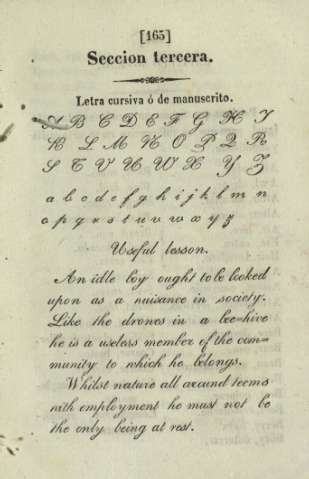 [165]
Seccion tercera.
Letra cursiva ó de manuscrito.
A B C D E F G H I
K L M N O P Q R
S T V U W X Y Z
a b c d e f g h i j k l m n
o p q r s t u v w x y z
Useful lesson.
An idle boy ought to be looked
upon as a nuisance in society.
Like the drones in a bee=hive
he is a useless member of the com=
munity to which he belongs.
Whilst nature all around teems
with employment he must not be
the only being at rest.